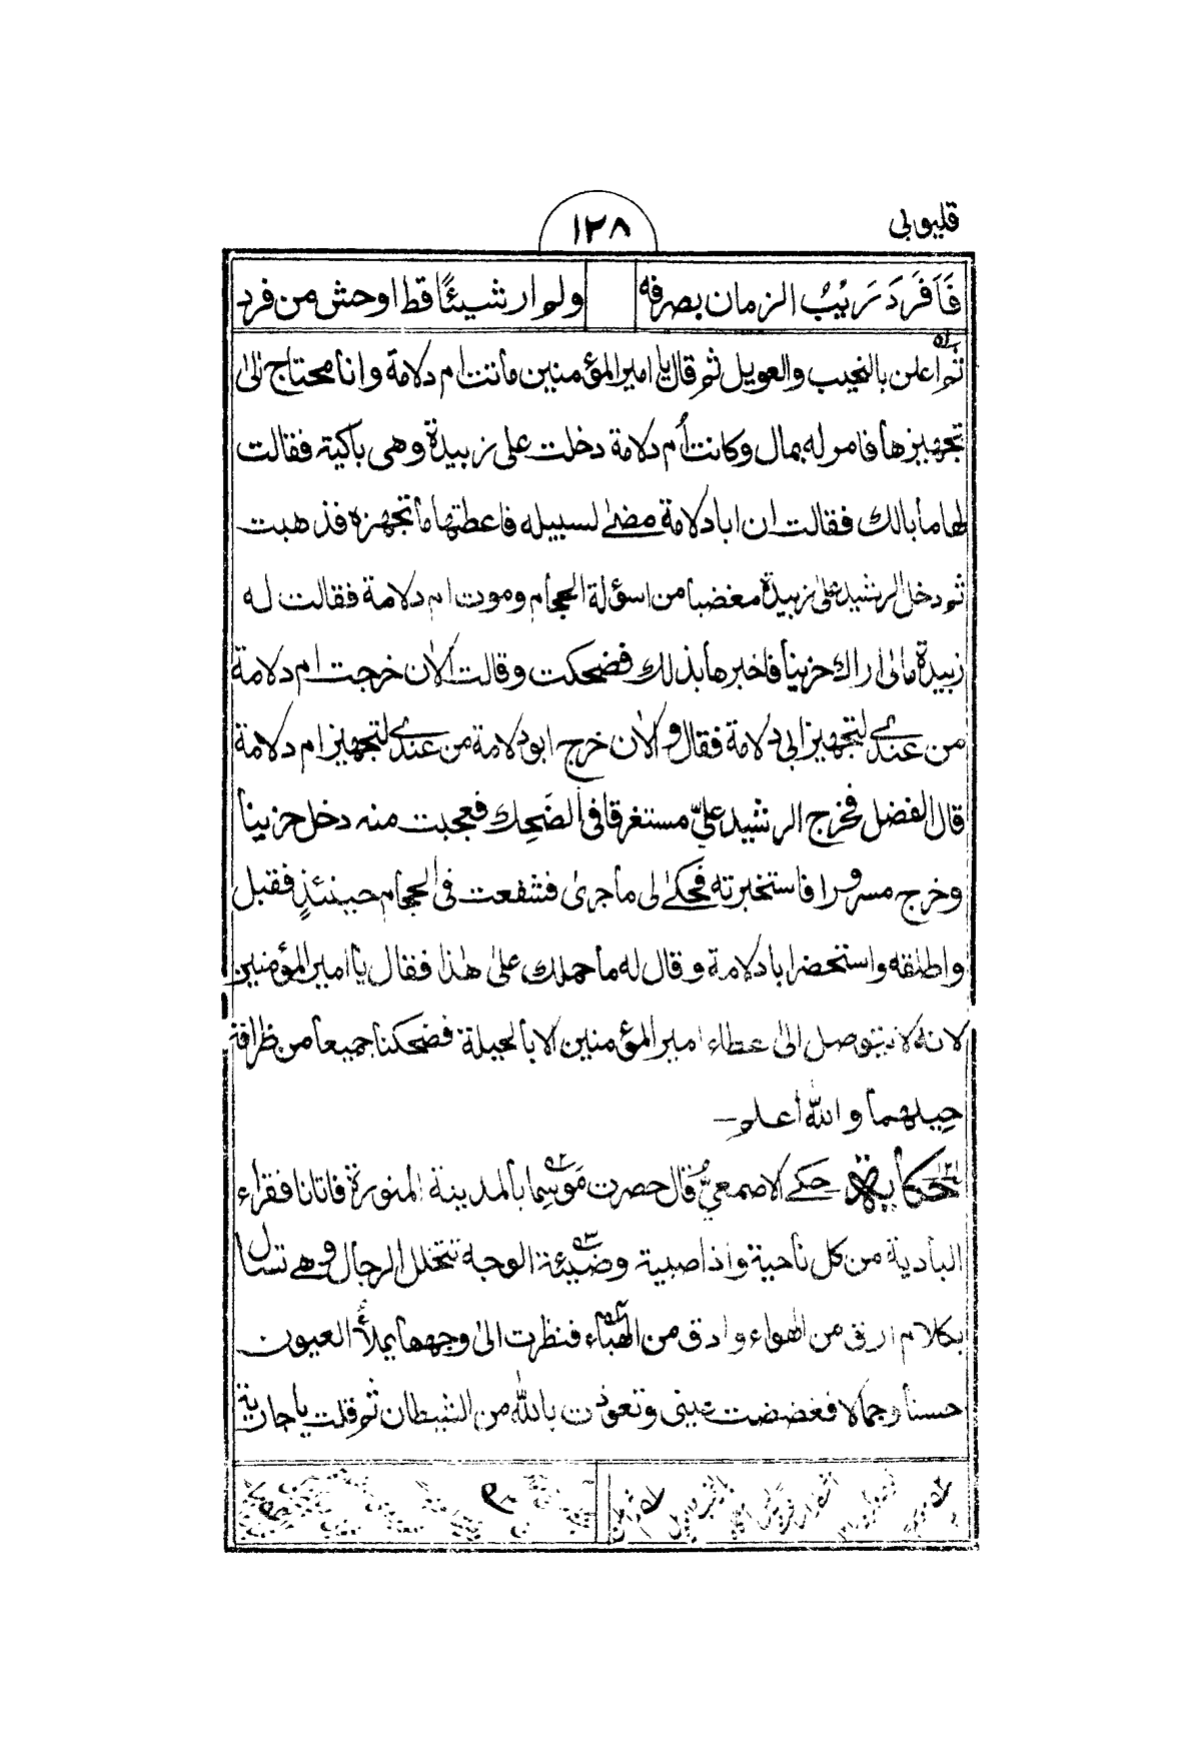 قليوبى
١٢٨
فَاَفَرَدَ رَيْبُ الزمان بصرفه ولم ار شيئًا قط اوحش من فرد
ثم اعلن بالنحيب والعويل ثم قال يا امير المؤمنين ماتت ام دلامة وانا محتاج الى
تجهيزها فامر له بمال وكانت أم دلامة دخلت على زبيدة وهى باكية فقالت
لها ما بالك فقالت ان ابا دلامة مضى لسبيله فاعطتها ما تجهزه فذهبت
ثم دخل الرشيد على زبيدة مغضبا من اسؤلة الحجام وموت ام دلامة فقالت له
زبيدة مالى اراك حزينا فاخبرها بذلك فضحكت وقالت الان خرجت ام دلامة
من عندى لتجهيز ابى دلامة فقال والان خرج ابو دلامة من عندى لتجهيز ام دلامة
قال الفضل فخرج الرشيد علىّ مستغرقا فى الضَحِك فعجبت منه دخل حزينا
وخرج مسرورا فاستخبرته فحكى لى ما جرى فشفعت فى الحجام حينئذٍ فقبل
واطلقه واستحضر ابا دلامة وقال له ما حملك على هذا فقال يا امير المؤمنين
لانه لا نتوصل الى عطاء امير المؤمنين الا بالحيلة فضحكنا جميعا من ظرافة
حيلهما والله أعلم
حكاية حكى الاصمعىؒ قال حضرت مَوْسِما بالمدينة المنورة فاتانا فقراء
البادية من كل ناحية واذا صبية وضيئة الوجه تتخلل الرجال وهى تسأل
بكلام ارق من الهواء وادق من الهباء فنظرت الى وجهها يملأ العيون
حسنا وجمالا فغضضت عينى وتعوذت بالله من الشيطان ثم قلت يا جارية